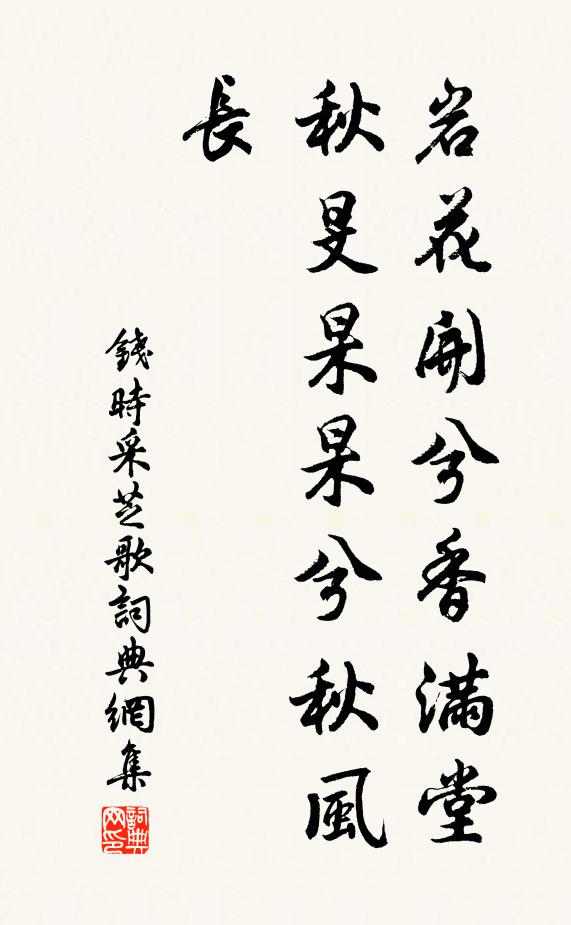 岩花開兮香滿堂
秋旻杲杲兮秋風
長
錢時采芝歌詞典網集
詞典網印